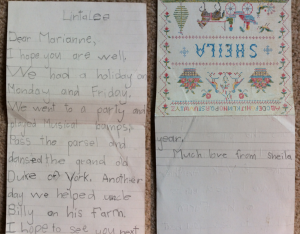 Dear Marianne,
I hope you are well
We had a holiday on
Monday and Friday.
We went to a party and
played Musical bumps,
Pass the parsel and
dansed the grand old
Duke of York. Another
day we helped uncle
Billy on his farm.
I hope to see you next
SHEILA
year.
Much love from sheila